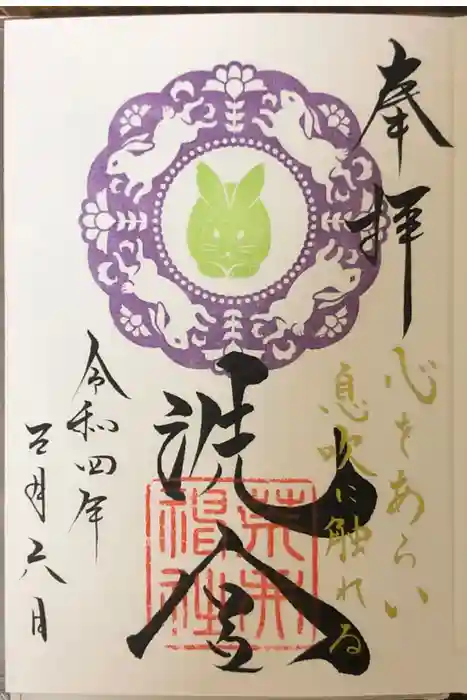 奉拝
心をあらい
息吹に触れる
洗
神社
令和四年
五月六日